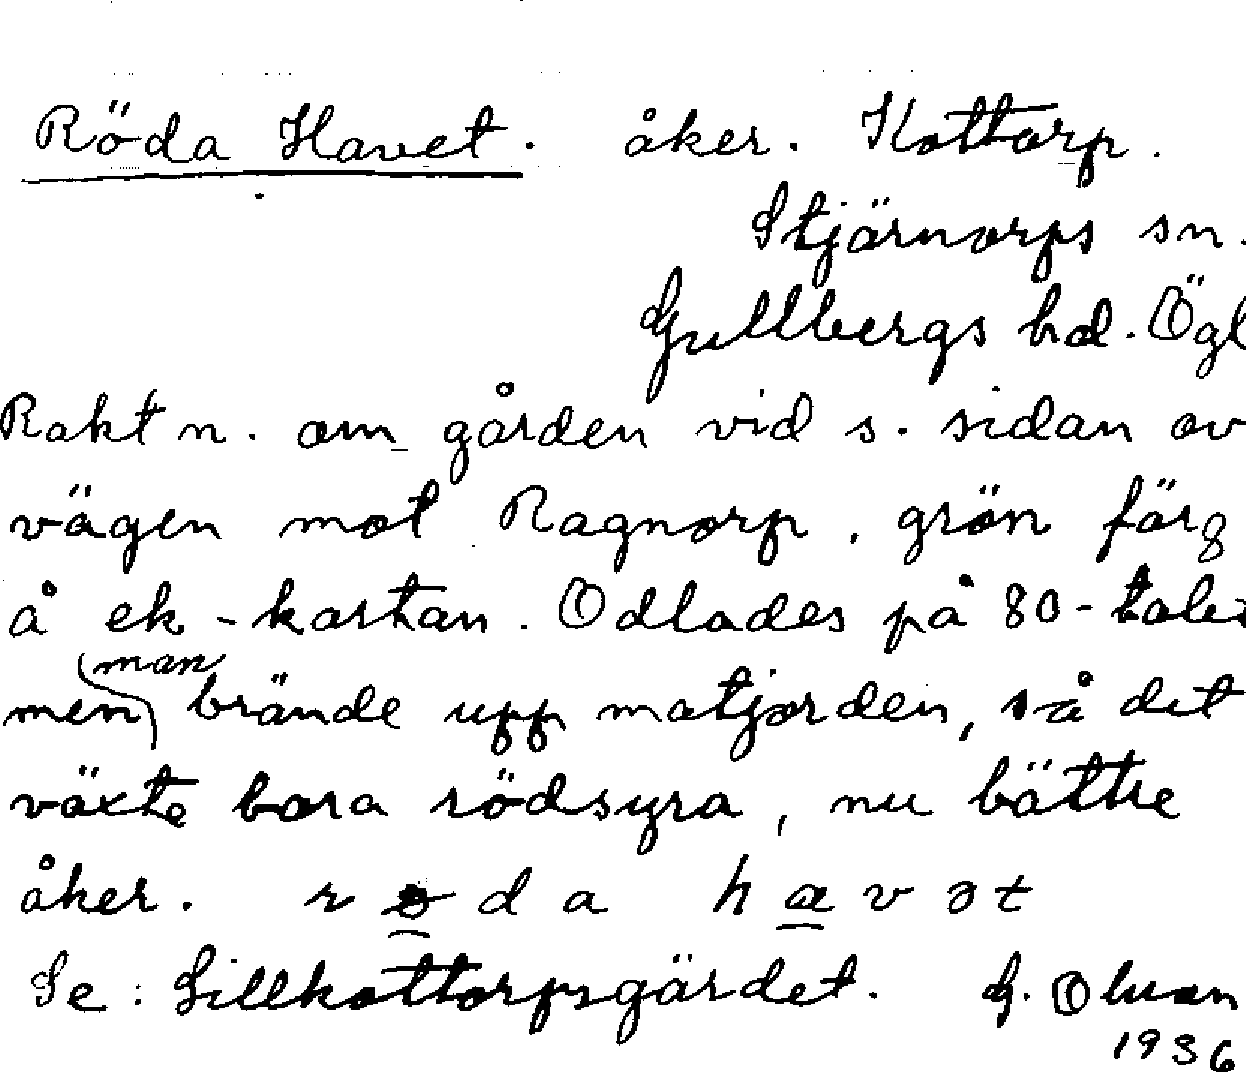 Röda Havet. åker. Kottorp.
Stjärnorps sn.
Gullbergs hd. Ögl
Rakt n. om gården vid s. sidan av
vägen mot Ragnorp, grön färg
å ek-kartan. Odlades på 80-talet
man
men brände upp matjorden, så det
växte bara rödsyra, nu bättre
åker. r ø d a h æ v ə t
Se: Lillkottorpsgärdet. G. Olsson
1936